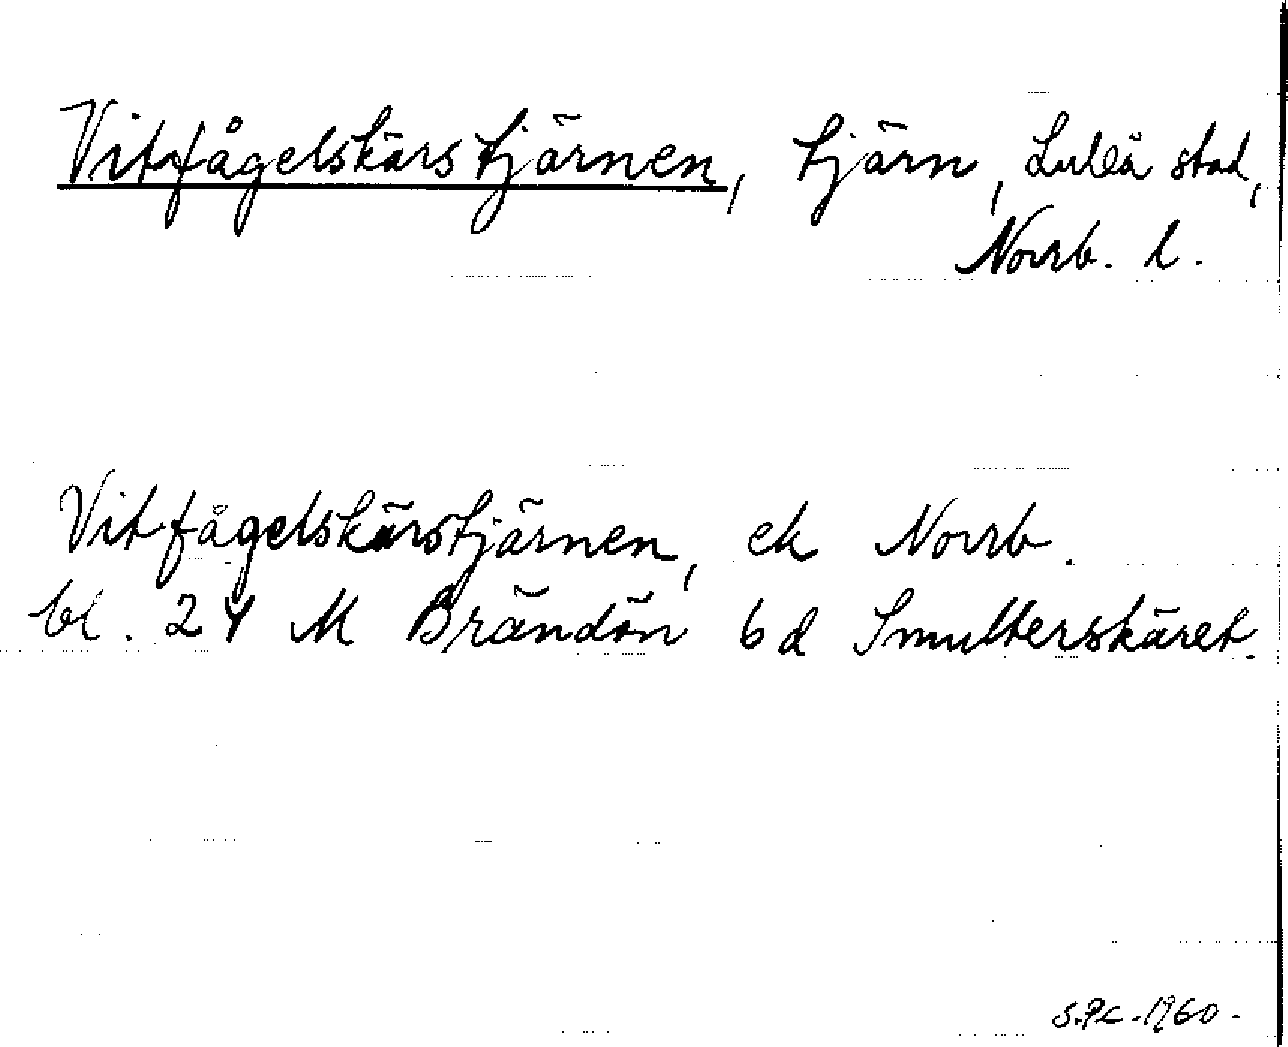 Vitfågelskärstjärnen, tjärn, Luleå stad,
Norrb. l.
Vitfågelskärstjärnen, ek Norrb.
bl. 24 M Brändön 6d Smulterskäret.
S.Pc. 1960.